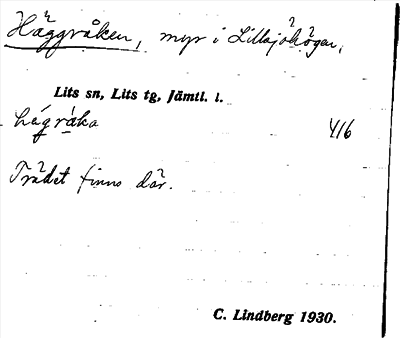 Häggråken, myr i Lillsjöhögen,
Lits sn, Lits tg, Jämtl. l.
hégråka 416
Trädet finns där.
C. Lindberg 1930.